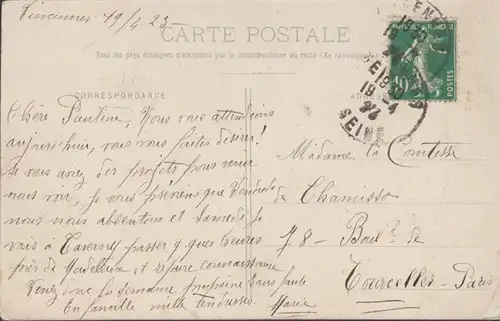 Vincennes 19/4 23-
CARTE POSTALE
Tous les pays étrangers n'acceptent pas la correspondance au recto (Se renseigner
CORRESPONDANCE
ADRESSE
10
POSTES
SEINE
19 -4
Chère Pauline, Vous vous attendions
aujourd'hui, vous vous faites désirer!
Si vous avez des projets pour venir
nous voir, je vous préviens que Vendredi
nous nous absentons et Samedi je
vais à Taverny passer q. ques heures
près de Madeleine, et refaire connaissance
Venez donc la semaine prochaine sans faute
En famille mille tendresses. Marie
Madame la Comtesse
de Chamisso
78 - Boul d de
Courcelles - Paris